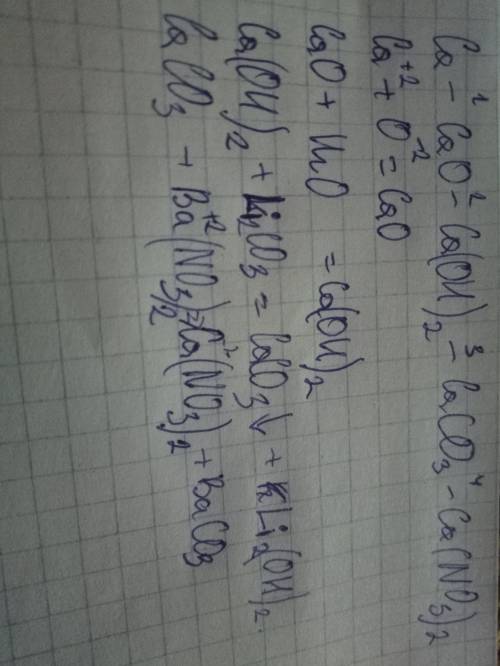 Ca -¹ CaO -² Ca(OH)₂ -³ CaCO₃ -⁴ Ca(NO₃)₂
Ca⁺² + O⁻² = CaO
CaO + H₂O = Ca(OH)₂
Ca(OH)₂ + Li₂CO₃ = CaCO₃↓ + Li₂(OH)₂.
CaCO₃ + Ba⁺²(NO₃)₂ = Ca(NO₃)₂ + BaCO₃